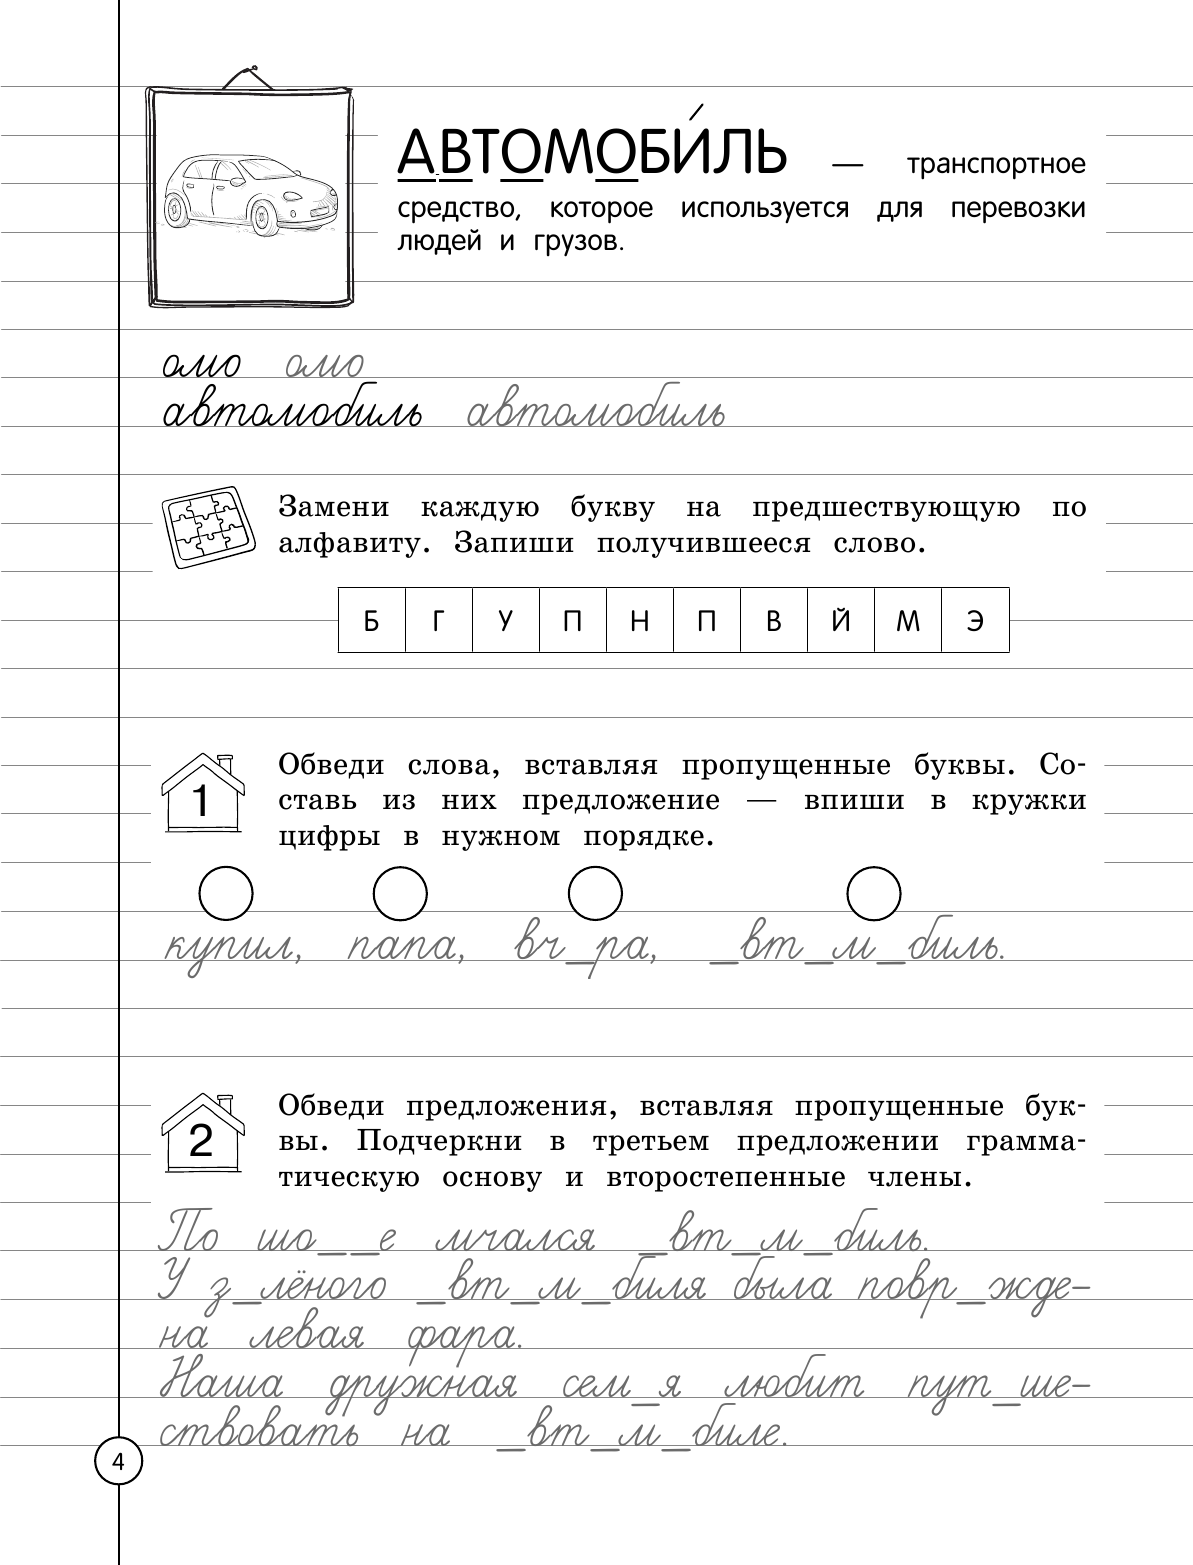 АВТОМОБИ́ЛЬ — транспортное
средство, которое используется для перевозки
людей и грузов.
омо омо
автомобиль автомобиль
Замени каждую букву на предшествующую по
алфавиту. Запиши получившееся слово.
Б Г У П Н П В Й М Э
1
Обведи слова, вставляя пропущенные буквы. Со-
ставь из них предложение — впиши в кружки
цифры в нужном порядке.
купил, папа, вч_ра, _вт_м_биль.
2
Обведи предложения, вставляя пропущенные бук-
вы. Подчеркни в третьем предложении грамма-
тическую основу и второстепенные члены.
По шо__е мчался _вт_м_биль.
У з_лёного _вт_м_биля была повр_жде-
на левая фара.
Наша дружная сем_я любит пут_ше-
ствовать на _вт_м_биле.
4